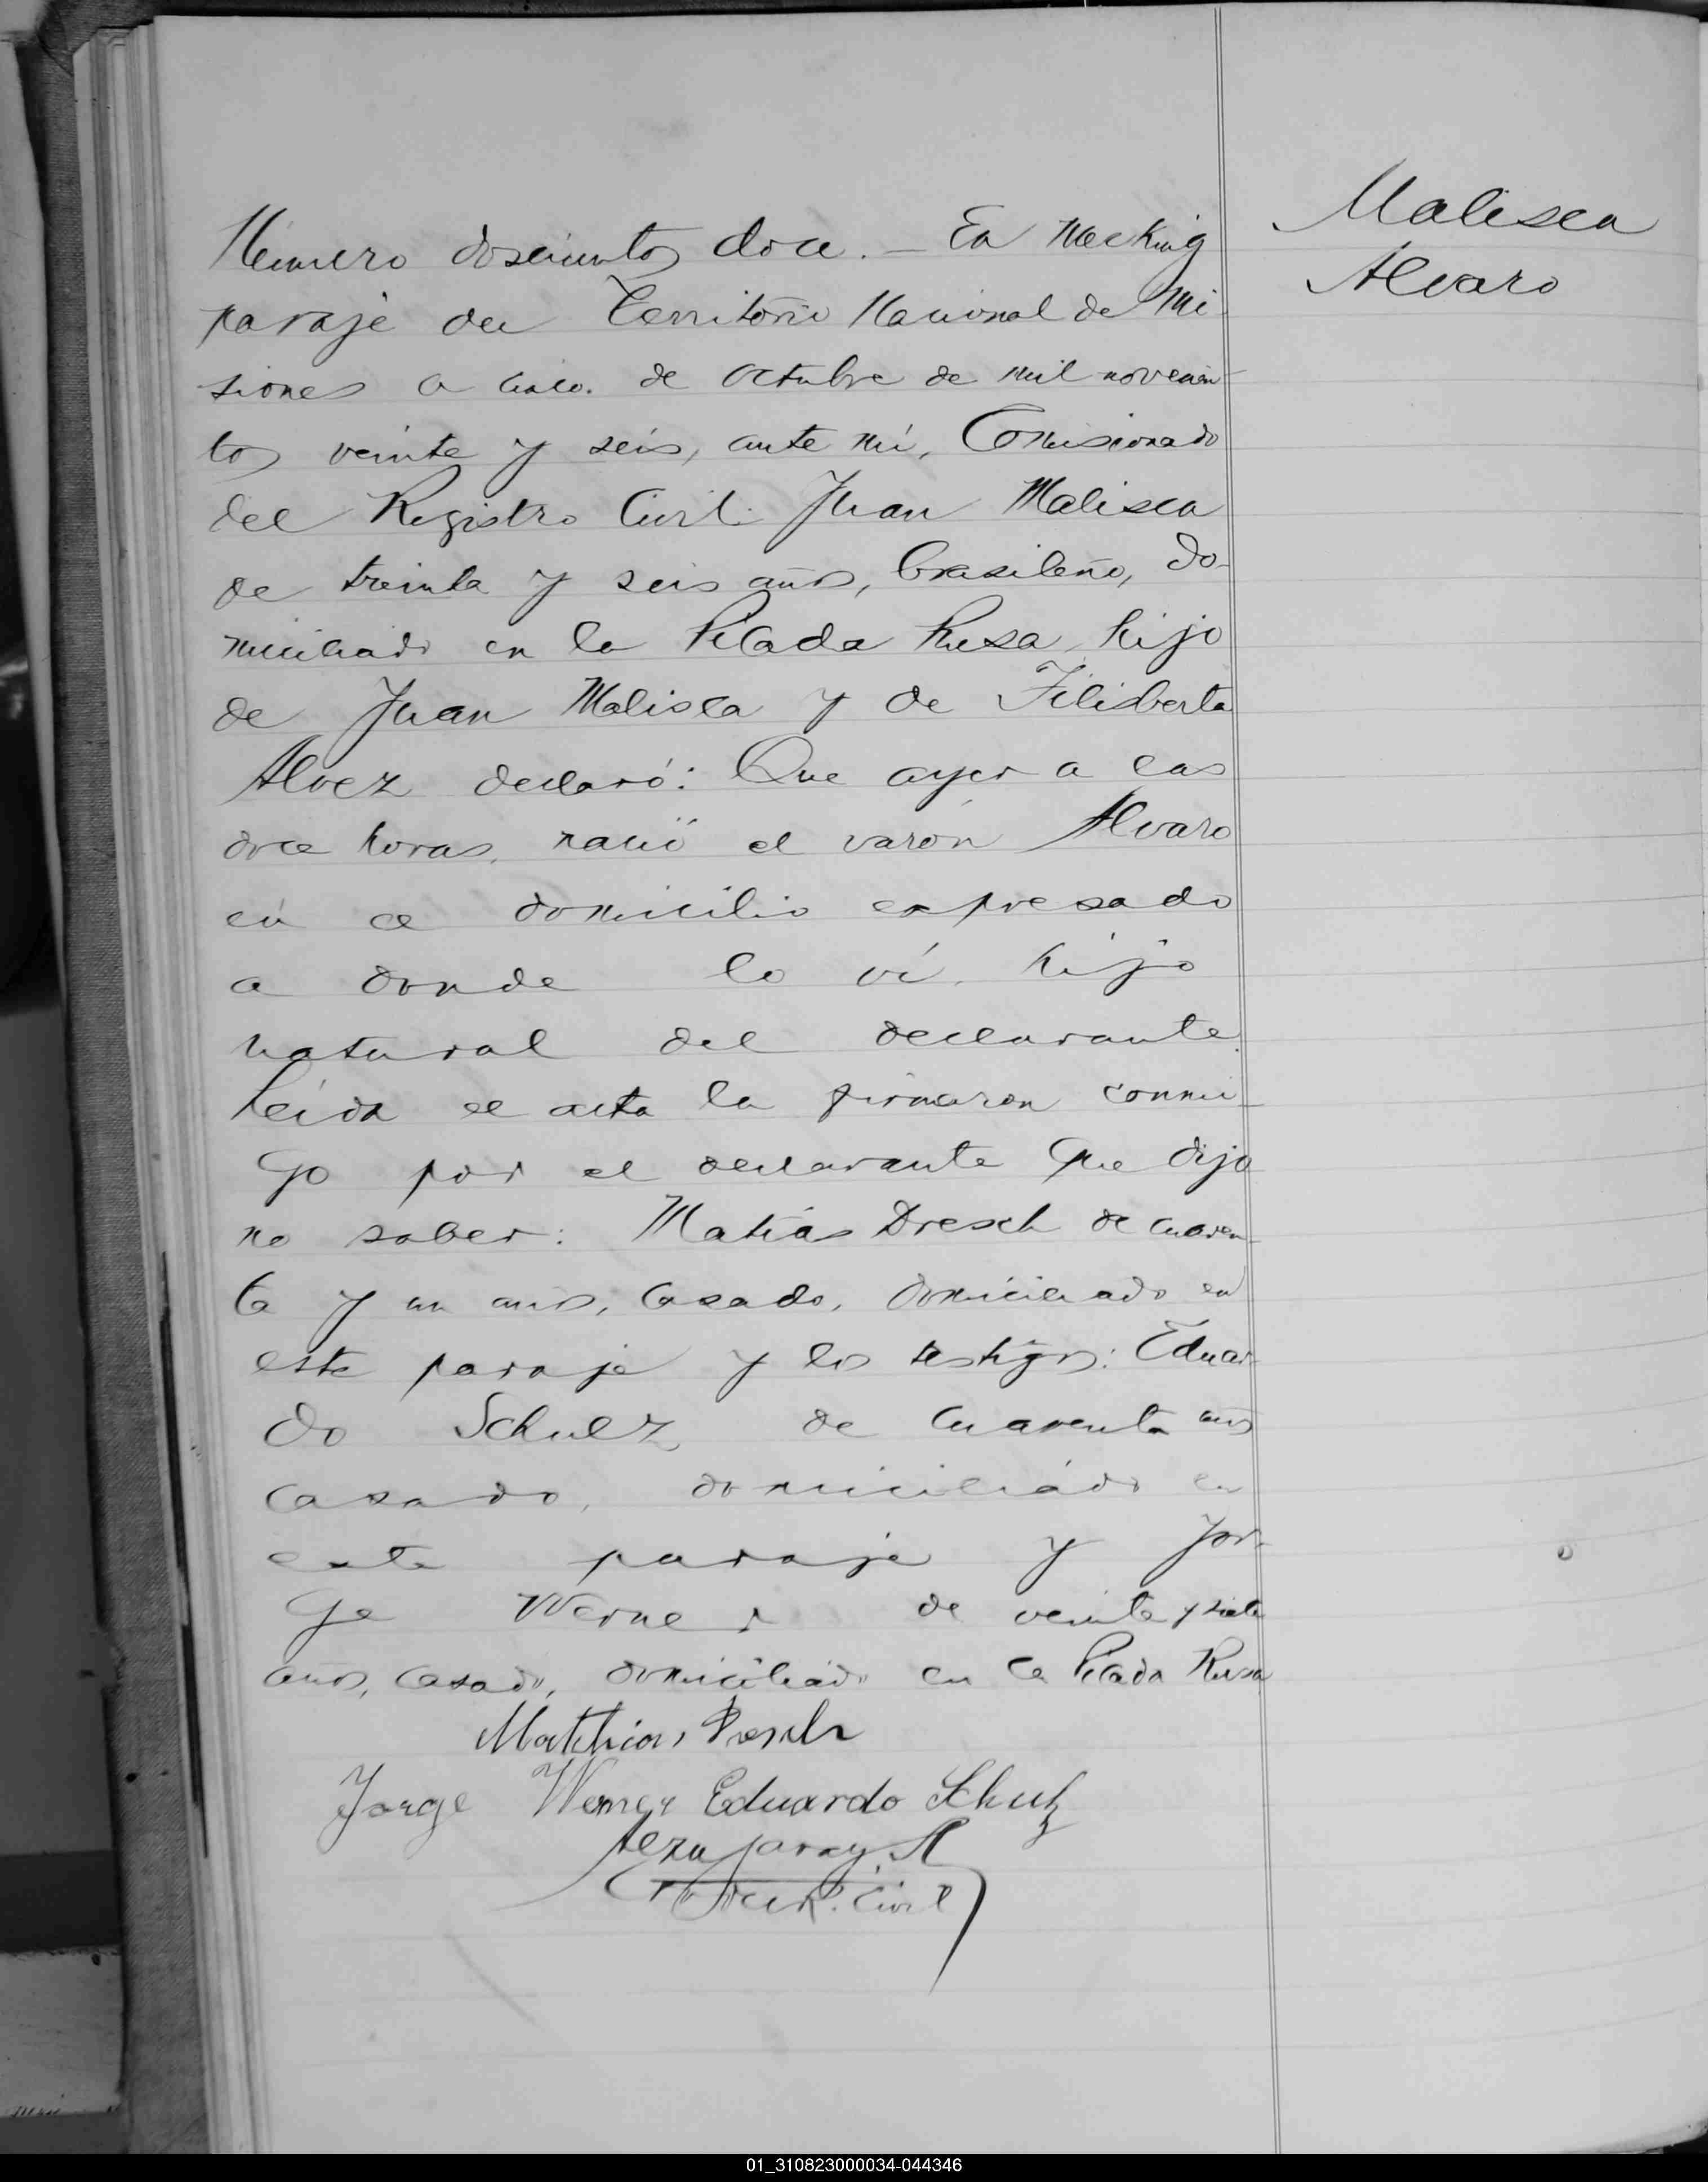 Malisca
Alvaro
Número doscientos doce. — En Mecking
paraje del Territorio Nacional de Mi
siones a cinco. de Octubre de mil novecien
tos veinte y seis, ante mí, Comisionado
del Registro Civil. Juan Malisca
de treinta y seis años, brasileño, do-
miciliado en la Picada Rusa, hijo
de Juan Malisca y de Filisberta
Alvez declaró: Que ayer a las
doce horas, nació el varón Alvaro
en el domicilio expresado
a donde lo ví, hijo
natural del declarante.
Leída el acta la firmaron conmi
go por el declarante que dijo
no saber: Matías Dresch de cuaren
ta y un años, casado, domiciliado en
este paraje y los testigos: Eduar
do Schulz de cuarenta años
casado, domiciliado en
este paraje y Jor-
ge Werner de veinte y siete
años, casado, domiciliado en la Picada Rusa
Matthias Dresch
Jorge Werner Eduardo Schulz
R. Civil
01_310823000034-044346